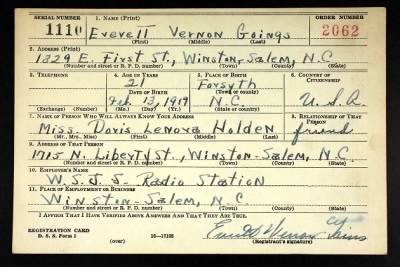 SERIAL NUMBER 1. NAME (Print) ORDER NUMBER
1110 Everett Vernon Goings 2062
(First) (Middle) (Last)
2. ADDRESS (Print)
1329 E. First St., Winston-Salem, N.C.
(Number and street or R. F. D. number) (Town) (County) (State)
3. TELEPHONE 4. AGE IN YEARS 5. PLACE OF BIRTH 6. COUNTRY OF CITIZENSHIP
21 Forsyth
DATE OF BIRTH (Town or county)
Feb. 13, 1919 N.C. U.S.A.
(Exchange) (Number) (Mo.) (Day) (Yr.) (State or country)
7. NAME OF PERSON WHO WILL ALWAYS KNOW YOUR ADDRESS 8. RELATIONSHIP OF THAT PERSON
Miss. Doris Lenova Holden friend
(Mr., Mrs., Miss) (First) (Middle) (Last)
9. ADDRESS OF THAT PERSON
1715 N. Liberty St., Winston-Salem, N.C.
(Number and street or R. F. D. number) (Town) (County) (State)
10. EMPLOYER'S NAME
W.S.J.S. Radio Station
11. PLACE OF EMPLOYMENT OR BUSINESS
Winston-Salem, N.C.
(Number and street or R. F. D. number) (Town) (County) (State)
I AFFIRM THAT I HAVE VERIFIED ABOVE ANSWERS AND THAT THEY ARE TRUE.
REGISTRATION CARD
D. S. S. Form 1 (over) 16-17105 (Registrant's signature)